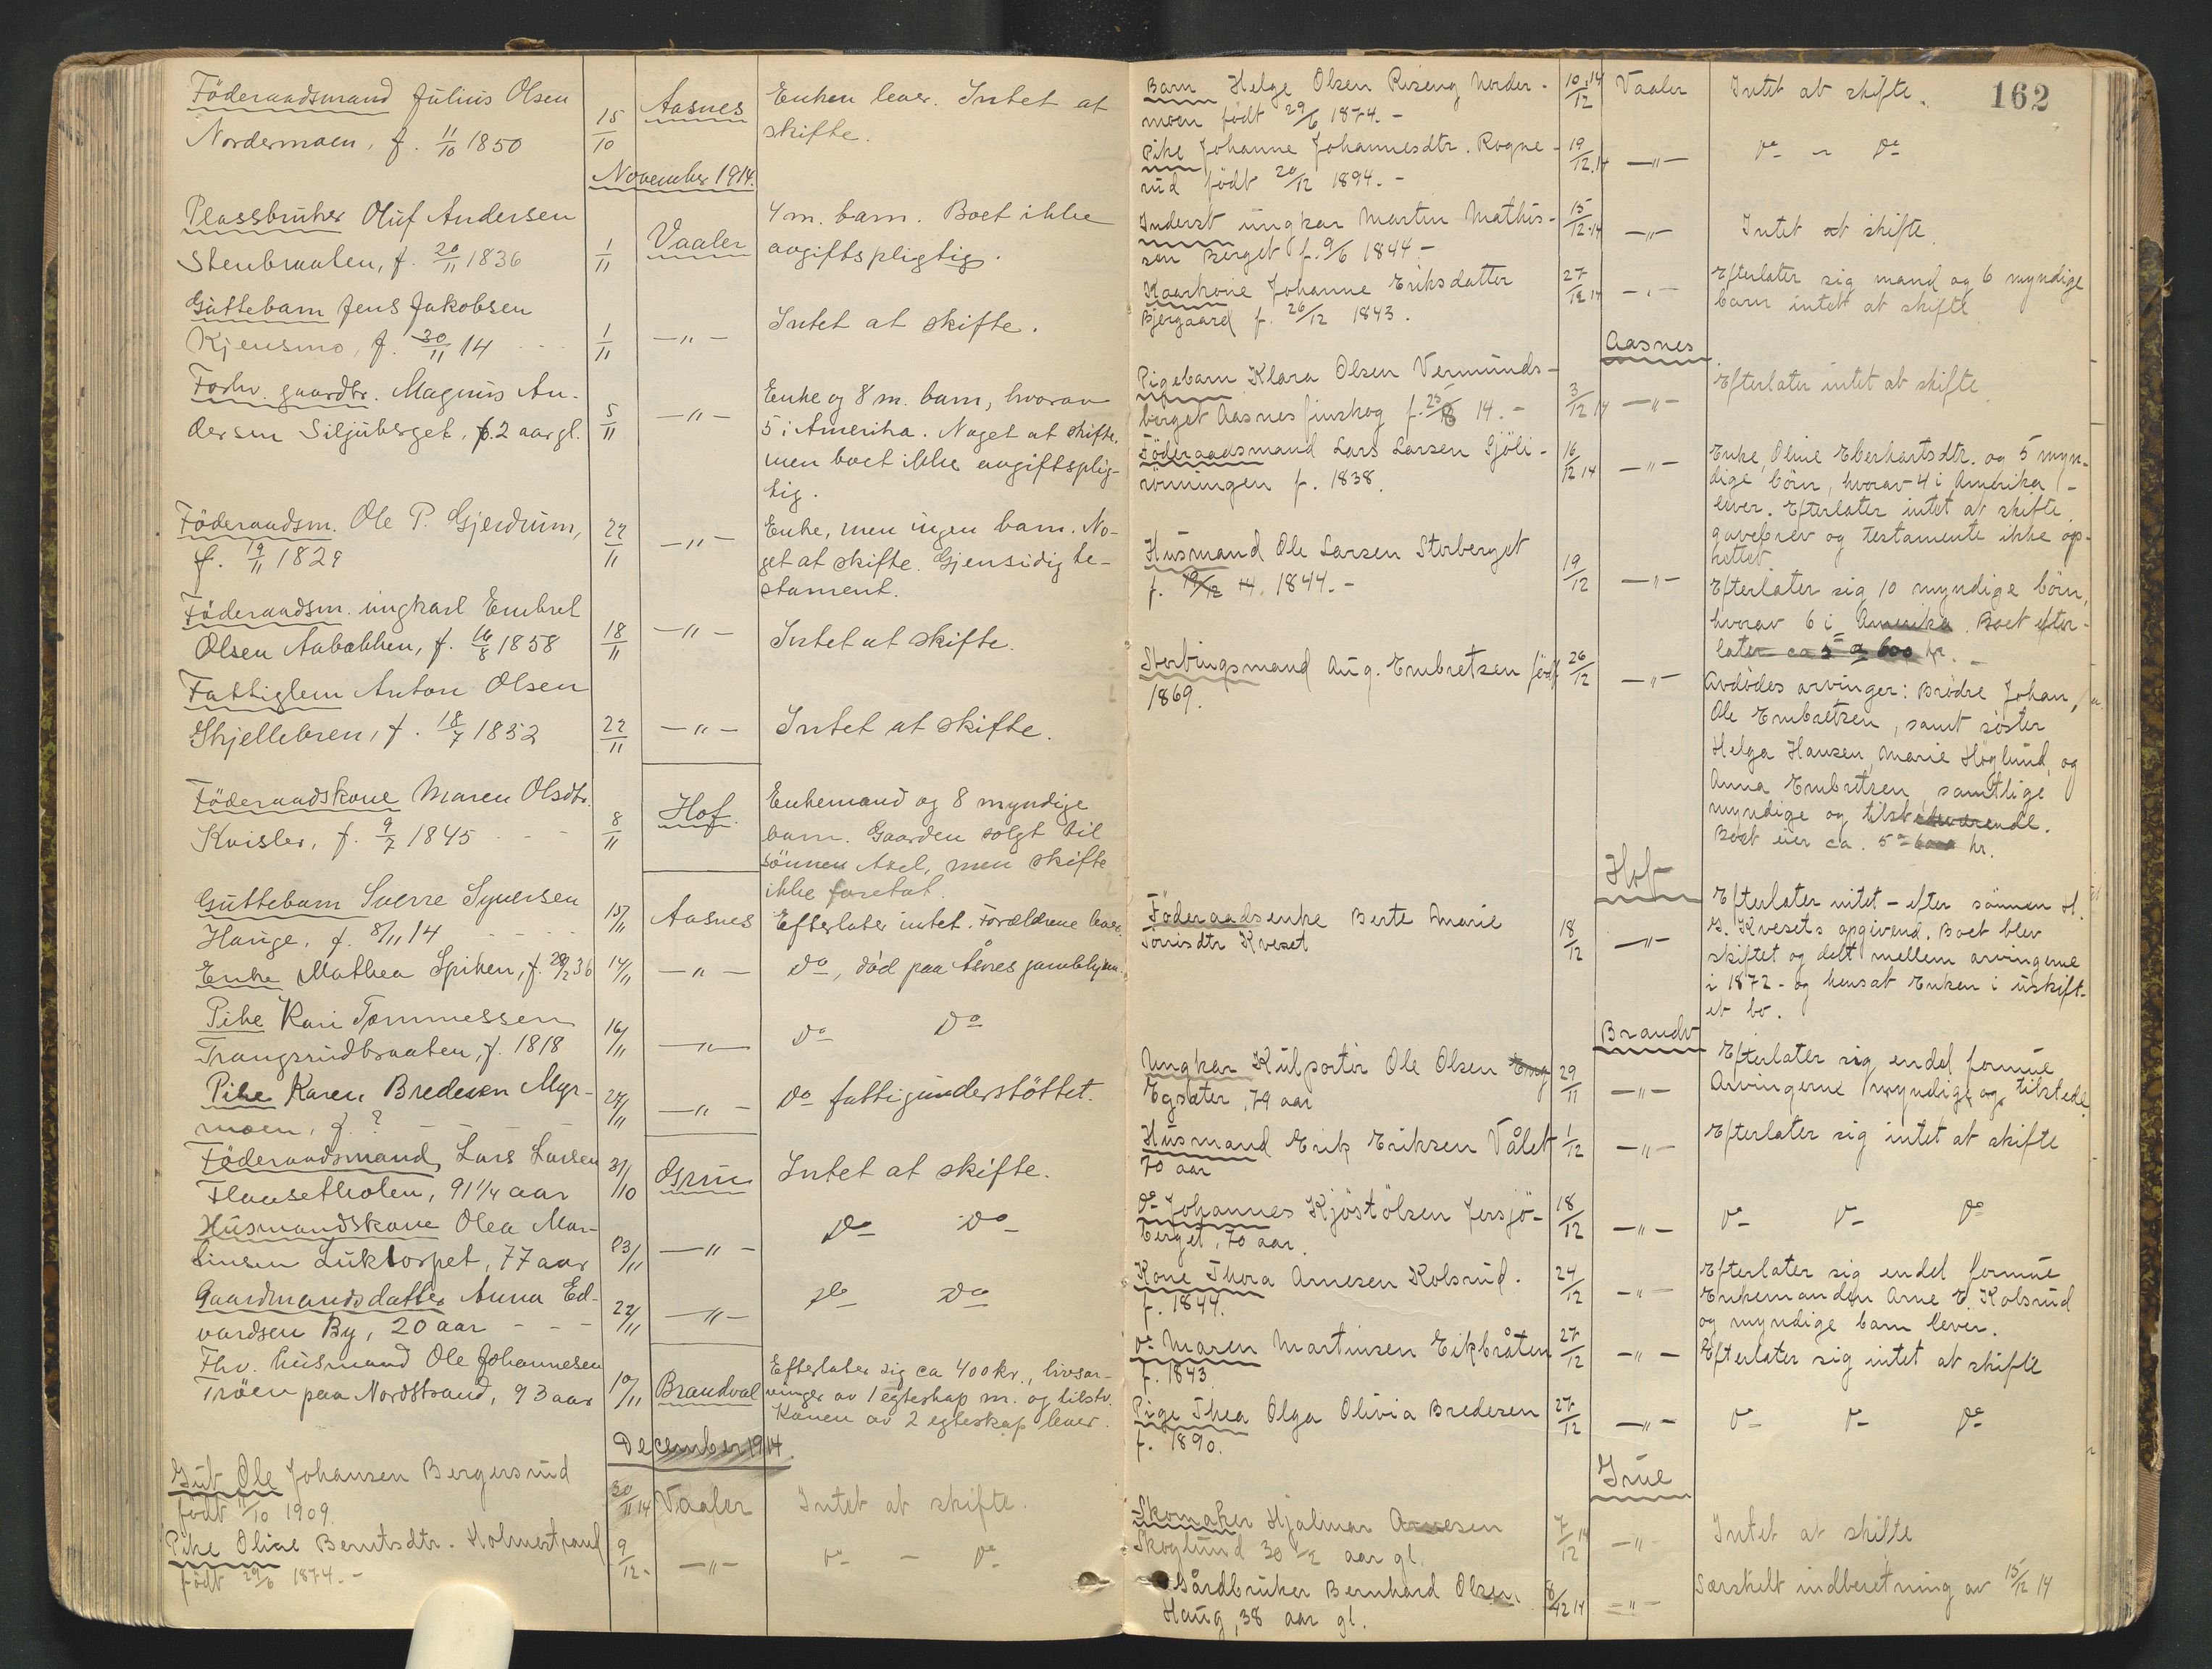 Föderaadsmand Julius Olsen
Nordermoen, f. 11/10 1850
15/10
Aasnes
Enken lever. Intet at
skifte.
November 1914.
Plassbruker Oluf Andersen
Stenbraaten, f. 20/11 1836
1/11
Vaaler
4 m. barn. Boet ikke
avgiftspligtig.
Guttebarn Jens Jakobsen
Kjensmo, f. 30/11 14
1/11
—„—
Intet at skifte.
Forhv. gaardbr. Magnus An-
dersen Siljuberget, 62 aar gl.
5/11
—„—
Enke og 8 m. barn, hvorav
5 i Amerika. Noget at skifte,
men boet ikke avgiftsplig-
tig.
Föderaadsm. Ole P. Gjerdrum,
f. 19/11 1829
22/11
—„—
Enke, men ingen barn. No-
get at skifte. Gjensidig te-
stament.
Föderaadsm. ungkarl Embret
Olsen Aabakken, f. 16/8 1858
18/11
—„—
Intet at skifte.
Fattiglem Anton Olsen
Skjellebren, f. 18/7 1832
22/11
—„—
Intet at skifte.
Föderaadskone Maren Olsdtr.
Kvisler, f. 9/7 1845
8/11
Hof.
Enkemand og 8 myndige
barn. Gaarden solgt til
sönnen Axel, men skifte
ikke foretat.
Guttebarn Sverre Syversen
Hauge, f. 8/11 14
15/11
Aasnes
Efterlater intet. Forældrene lever.
Enke Mathea Spiken, f. 28/2 36
14/11
—„—
Do, död paa Åsnes gamlehjem.
Pike Kari Tommessen
Trangsrudbraaten, f. 1818
16/11
—„—
Do Do
Pike Karen Bredesen Myr-
moen, f. ?
24/11
—„—
Do fattigunderstöttet.
Föderaadsmand, Lars Larsen
Flaasetholen, 91 1/4 aar
31/10
Grue
Intet at skifte.
Husmandskone Olea Mar-
tinsen Luktorpet, 77 aar
23/11
—„—
Do Do
Gaardmandsdatter Anna Ed-
vardsen By, 20 aar
22/11
—„—
Do Do
Fhv. husmand Ole Johannesen
Tröen paa Nordstrand, 93 aar
10/11
Brandval
Efterlater sig ca 400 kr., livsar-
vinger av 1 egteskap m. og tilstv.
Konen av 2 egteskap lever.
December 1914
Gut Ole Johansen Bergersrud
födt 11/10 1909.
30/11 14
Vaaler
Intet at skifte.
Pike Oline Berntsdtr. Holmestrand
födt 29/6 1874. -
9/12.
—„—
Do - Do
162
Barn Helge Olsen Riseng Norder-
moen födt 29/6 1874. -
10/12 14
Vaaler
Intet at skifte.
Pike Johanne Johannesdtr. Rogne-
rud födt 20/12 1894. -
19/12.14
—„—
Do - Do
Inderst ungkar Martin Mathis-
sen Berget f. 9/6 1844 -
15/12.14
—„—
Intet at skifte.
Kaarkone Johanne Eriksdatter
Bjergaard f. 26/12 1843.
27/12 14
—„—
Efterlater sig mand og 6 myndige
barn intet at skifte
Aasnes
Pigebarn Klara Olsen Vermunds-
berget Aasnes finskog f. 25 14. -
3/12 14
—„—
Efterlater intet at skifte
Föderaadsmand Lars Larsen Gjöli-
rönningen f. 1838.
16/12 14
—„—
Enke, Oline Eberhartsdtr. og 5 myn-
dige börn, hvorav 4 i Amerika -
lever. Efterlater intet at skifte.
gavebrev og testamente ikke op-
rettet.
Husmand Ole Larsen Storberget
f. 19/12 14. 1844. -
19/12
—„—
Efterlater sig 10 myndige börn,
hvorav 6 i Amerika. Boet efter-
later ca 5 a 600 kr. -
Storbingsmand Aug. Embretsen födt
1869.
26/12
—„—
Avdödes arvinger: Brödre Johan,
Ole Embretsen, samt söster
Helga Hansen, Marie Höglund, og
Anna Embretsen, samtlige
myndige og tilstedeværende.
Boet eier ca. 5 - 6000 kr.
Hof
Föderaadsenke Berte Marie
Tonisdtr Kveset
18/12
—„—
Efterlater intet - efter sönnen
Kvesets opgivend. Boet blev
skiftet og delt mellem arvingerne
i 1872 - og hensat Enken i uskift-
et bo.
Brandv
Ungkar Kulportör Ole Olsen Eng
Egsæter, 79 aar
29/11
—„—
Efterlater sig endel formue
Arvingerne myndige og tilstede.
Husmand Erik Eriksen Vålet
70 aar
1/12
—„—
Efterlater sig intet at skifte
Do Johannes Kjöstölsen Jersjö-
berget, 70 aar.
18/12
—„—
Do Do Do
Kone Thora Arnesen Kolsrud.
f. 1844.
24/12
—„—
Efterlater sig endel formue
Enkemanden Arne E. Kolsrud
og myndige barn lever.
Do Maren Martinsen Eikbråten
f. 1843
27/12
—„—
Efterlater sig intet at skifte
Pige Thea Olga Olivia Bredesen
f. 1890.
27/12
—„—
Do Do Do
Grue
Skomaker Hjalmar Arnesen
Skoglund 30 1/2 aar gl.
7/12 14
—„—
Intet at skifte
Gårdbruker Bernhard Olsen
Haug, 38 aar gl.
8/12 14
—„—
Særskelt indberetning av 15/12 14